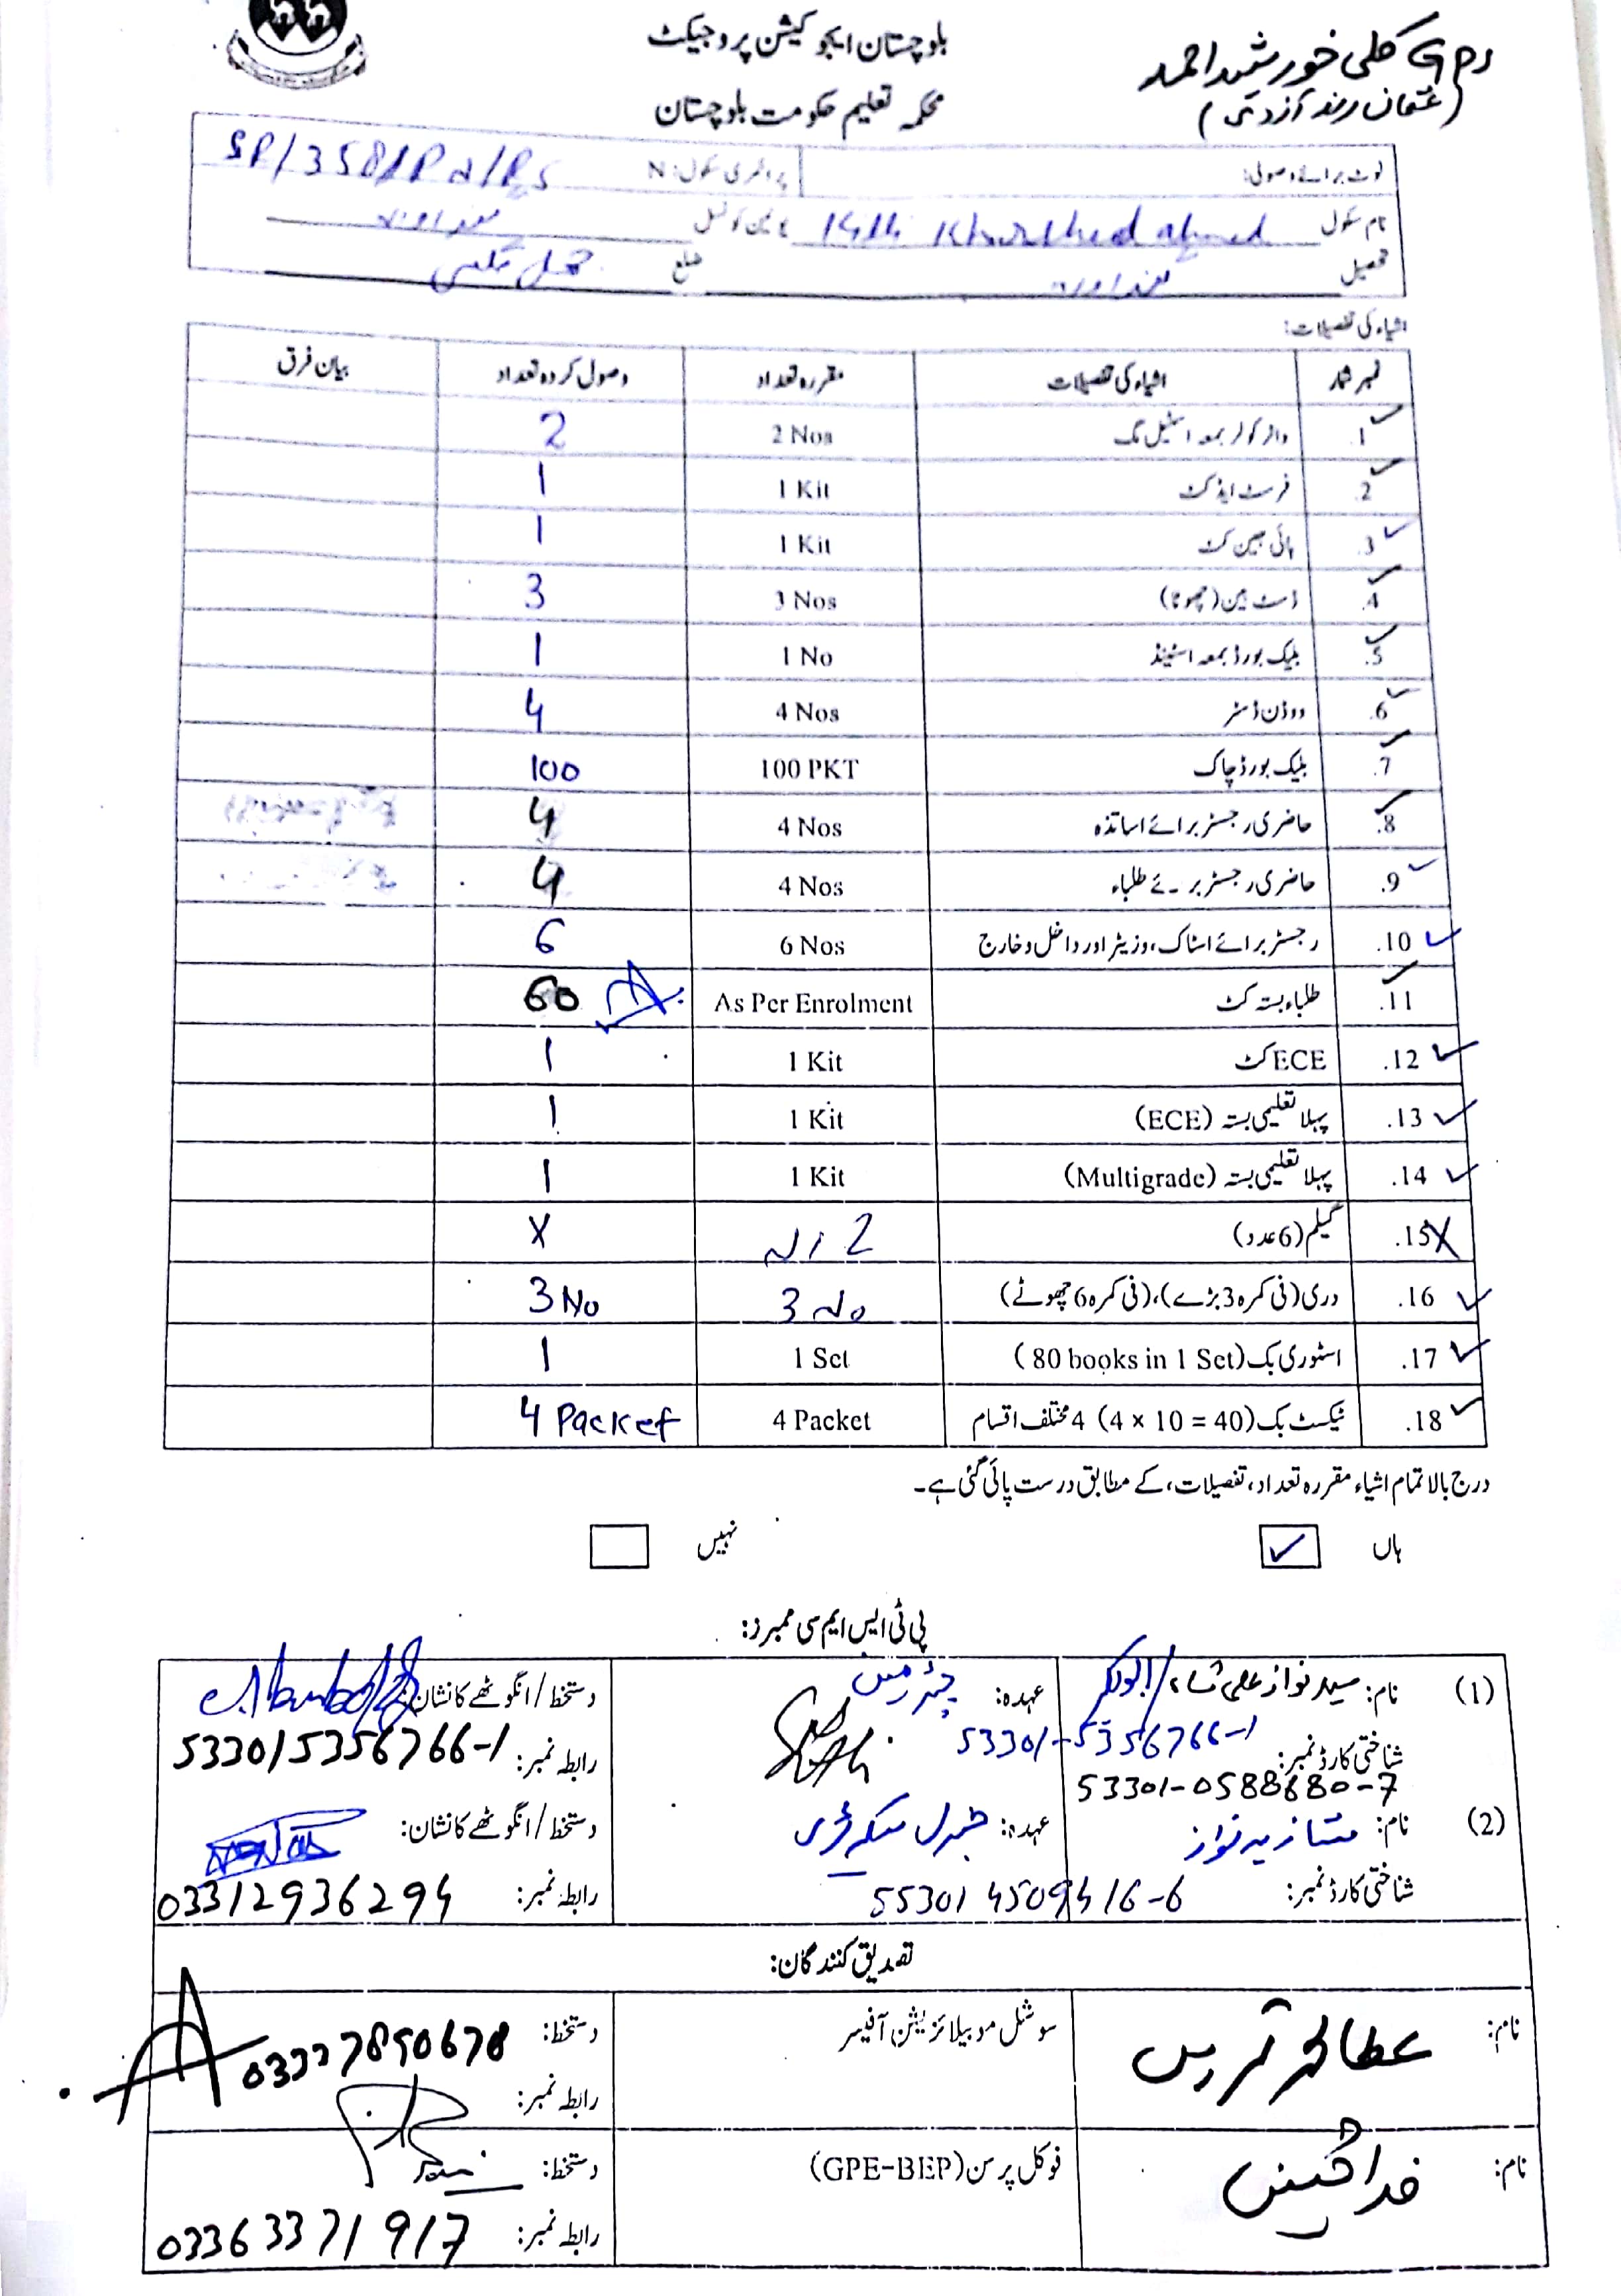 بلوچستان ایجوکیشن پروجیکٹ
محکمہ تعلیم حکومت بلوچستان
GPS کلی خورشید احمد
(عثمان رند
نوٹ برائے وصولی: پرائمری سکول: N
نام سکول Killi Khurshed ahmed یونین کونسل گنداواہ
تحصیل گنداواہ ضلع جھل مگسی
اشیاء کی تفصیلات:
نمبر شمار اشیاء کی تفصیلات مقررہ تعداد وصول کردہ تعداد بیان فرق
1. واٹر کولر بمعہ اسٹیل مگ 2 Nos 2
2. فرسٹ ایڈ کٹ 1 Kit 1
3. ہائی جین کٹ 1 Kit 1
4. ڈسٹ بین (چھوٹا) 3 Nos 3
5. بلیک بورڈ بمعہ اسٹینڈ 1 No 1
6. ووڈن ڈسٹر 4 Nos 4
7. بلیک بورڈ چاک 100 PKT 100
8. حاضری رجسٹر برائے اساتذہ 4 Nos 4
9. حاضری رجسٹر برائے طلباء 4 Nos 4
10. رجسٹر برائے اسٹاک، وزیٹر اور داخل و خارج 6 Nos 6
11. طلباء بستہ کٹ As Per Enrolment 60
12. ECE کٹ 1 Kit 1
13. پہلا تعلیمی بستہ (ECE) 1 Kit 1
14. پہلا تعلیمی بستہ (Multigrade) 1 Kit 1
15. گلیم (6 عدد) X
16. دری (فی کمرہ 3 بڑے)، (فی کمرہ 6 چھوٹے) 3 No 3 No
17. اسٹوری بک (80 books in 1 Set) 1 Set 1
18. ٹیکسٹ بک (4 × 10 = 40) 4 مختلف اقسام 4 Packet 4 Packet
درج بالا تمام اشیاء مقررہ تعداد، تفصیلات، کے مطابق درست پائی گئی ہے۔
ہاں ✓ نہیں
پی ٹی ایس ایم سی ممبرز:
(1) نام: سید نواز علی شاہ / عہدہ: چئرمین دستخط / انگوٹھے کا نشان:
شناختی کارڈ نمبر: 53301-5356766-1 رابطہ نمبر: 533015356766-1
53301-0588680-7
(2) نام: نواز عہدہ: جنرل سیکٹری دستخط / انگوٹھے کا نشان:
شناختی کارڈ نمبر: 55301 4509416-6 رابطہ نمبر: 03312936294
تصدیق کنندگان:
نام: سوشل موبیلائزیشن آفیسر دستخط:
رابطہ نمبر: 03337850678
نام: فدا حسین فوکل پرسن (GPE-BEP) دستخط:
رابطہ نمبر: 03363371917